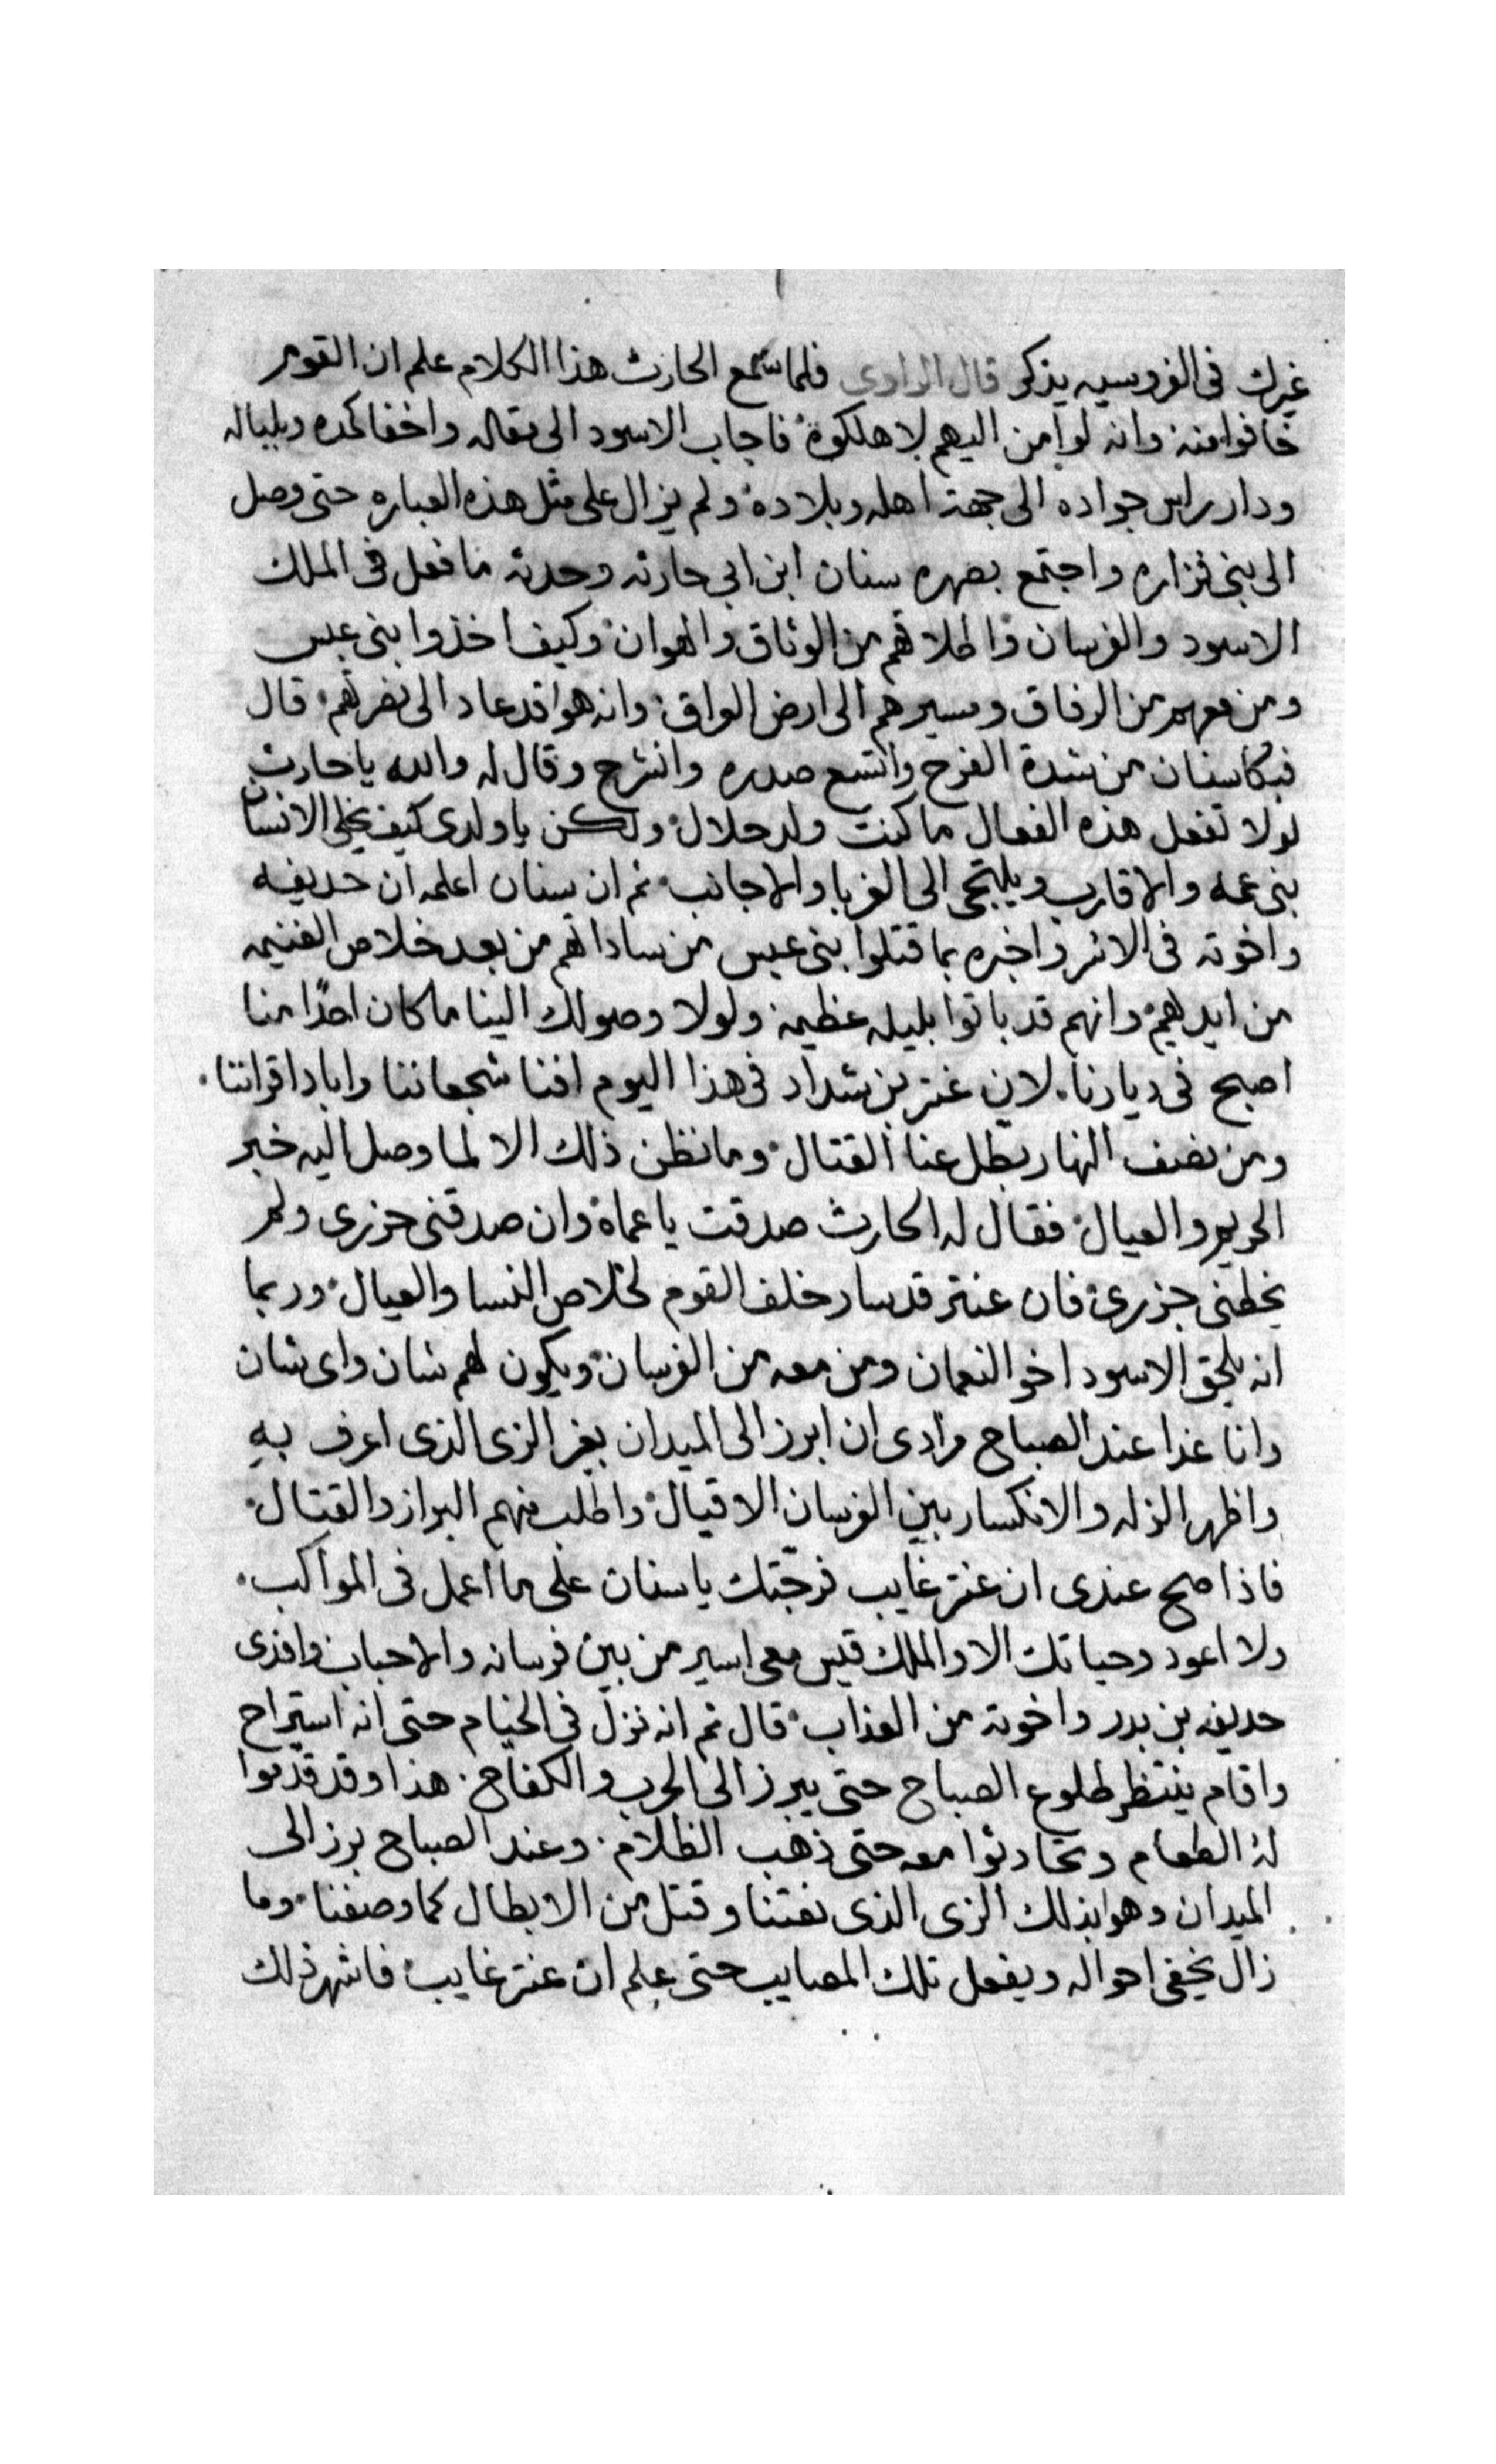 غيرك فى الفروسيه يذكر قال الراوى فلما سمع الحارث هذا الكلام علم ان القوم
خافوا منه وانه لو امن اليهم لاهلكوه فاجاب الاسود الى مقاله واخفا كمده وبلباله
ودار براس جواده الى جهة اهله وبلاده ولم يزال على مثل هذه العباره حتى وصل
الى بنى فزاره واجتمع بصهره سنان ابن ابى حارثه وحدثه ما فعل فى الملك
الاسود والفرسان واطلاقهم من الوثاق والهوان وكيف اخذوا بنى عبس
ومن معهم من الرفاق ومسيرهم الى ارض العراق وانه هوا قد عاد الى نصرتهم قال
فبكا سنان من شدة الفرح واتسع صدره وانشرح وقال له والله يا حارث
لولا تفعل هذه الفعال ما كنت ولد حلال ولكن يا ولدى كيف يخلى الانسان
بنى عمه والاقارب ويلتجى الى الغربا والاجانب ثم ان سنان اعلمه ان حديفه
واخوته فى الاسر واخبره بما قتلوا بنى عبس من ساداتهم من بعد خلاص الغنيمه
من ايديهم وانهم قد باتوا بليله عظيمه ولولا وصولك الينا ما كان احدًا منا
اصبح فى ديارنا لان عنتر بن شداد فى هذا اليوم افنا شجعاننا واباد اقراننا
ومن نصف النهار بطل عنا القتال وما نظن ذلك الا لما وصل اليه خبر
الحريم والعيال فقال له الحارث صدقت يا عماه وان صدقنى حزرى ولم
يخطنى حزرى فان عنتر قد سار خلف القوم لخلاص النسا والعيال وربما
انه يلحق الاسود اخو النعمان ومن معه من الفرسان ويكون لهم شان واى شان
وانا غدا عند الصباح مرادى ان ابرز الى الميدان بغير الزى الذى اعرف به
واظهر الذله والانكسار بين الفرسان الاقيال واطلب منهم البراز والقتال
فاذا صح عندى ان عنتر غايب فرجتك يا سنان على ما اعمل فى المواكب
ولا اعود وحياتك الا والملك قيس معى اسير من بين فرسانه والاحباب وافدى
حديفه بن بدر واخوته من العذاب قال ثم انه نزل فى الخيام حتى انه استراح
واقام ينتظر طلوع الصباح حتى يبرز الى الحرب والكفاح هذا وقد قدموا
له الطعام وتحادثوا معه حتى ذهب الظلام وعند الصباح برز الى
الميدان وهوا بذلك الزى الذى نعتنا وقتل من الابطال كما وصفنا وما
زال يخفى احواله ويفعل تلك المصايب حتى علم ان عنتر غايب فاشهر ذلك